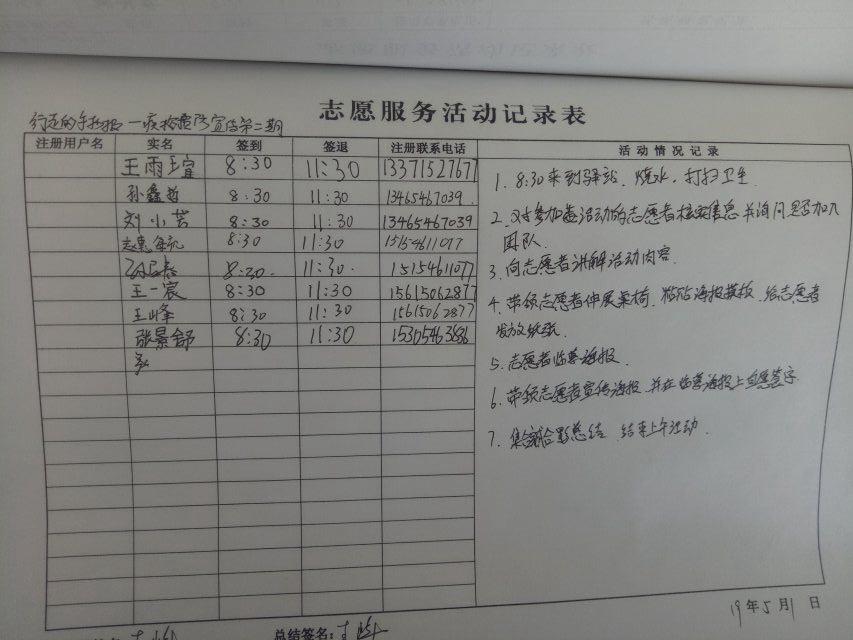 志愿服务活动记录表
行走的手抄报 — 宣传第二期
注册用户名 实名 签到 签退 注册联系电话 活动情况记录
王雨瑄 8:30 11:30 13371527677
孙鑫哲 8:30 11:30 13465467039
刘小芸 8:30 11:30 13465467039
8:30 11:30 15154611077
8:30 11:30 15154611077
王一宸 8:30 11:30 15615062877
王峰 8:30 11:30 15615062877
张景舒 8:30 11:30 15305463886
1. 8:30来到驿站、烧水,打扫卫生
2. 对参加活动的志愿者核实信息并询问是否加入
团队.
3. 向志愿者讲解活动内容.
4. 带领志愿者伸展桌椅、粘贴海报模板、给志愿者
发放纸张.
5. 志愿者临摹海报.
6. 带领志愿者宣传海报并在临摹海报上签字
7. 集合合影总结、结束上午活动.
19年5月1日
总结签名:王峰